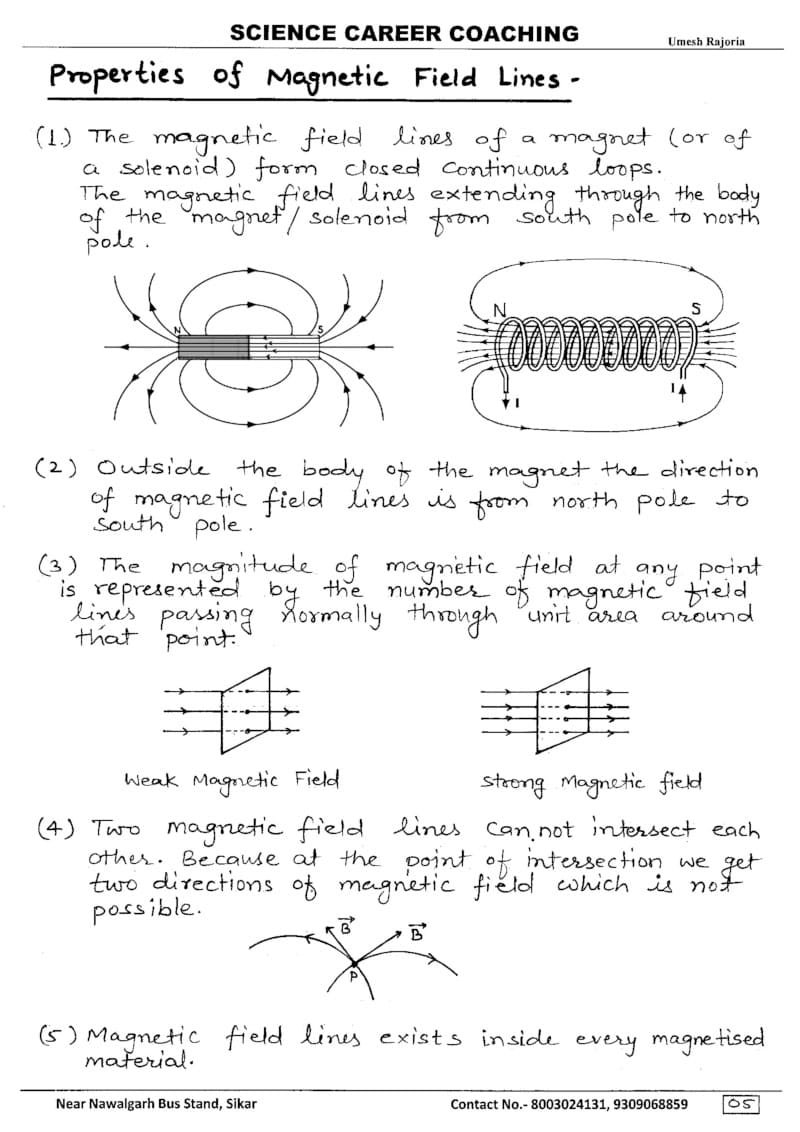 SCIENCE CAREER COACHING
Umesh Rajoria
Properties of Magnetic Field Lines -
(1.) The magnetic field lines of a magnet (or of
a solenoid) form closed continuous loops.
The magnetic field lines extending through the body
of the magnet/solenoid from south pole to north
pole.
N S
N S
I I
(2) Outside the body of the magnet the direction
of magnetic field lines is from north pole to
south pole.
(3) The magnitude of magnetic field at any point
is represented by the number of magnetic field
lines passing normally through unit area around
that point.
Weak Magnetic Field
Strong Magnetic field
(4) Two magnetic field lines can not intersect each
other. Because at the point of intersection we get
two directions of magnetic field which is not
possible.
B⃗ B⃗
P
(5) Magnetic field lines exists inside every magnetised
material.
Near Nawalgarh Bus Stand, Sikar Contact No.- 8003024131, 9309068859 05